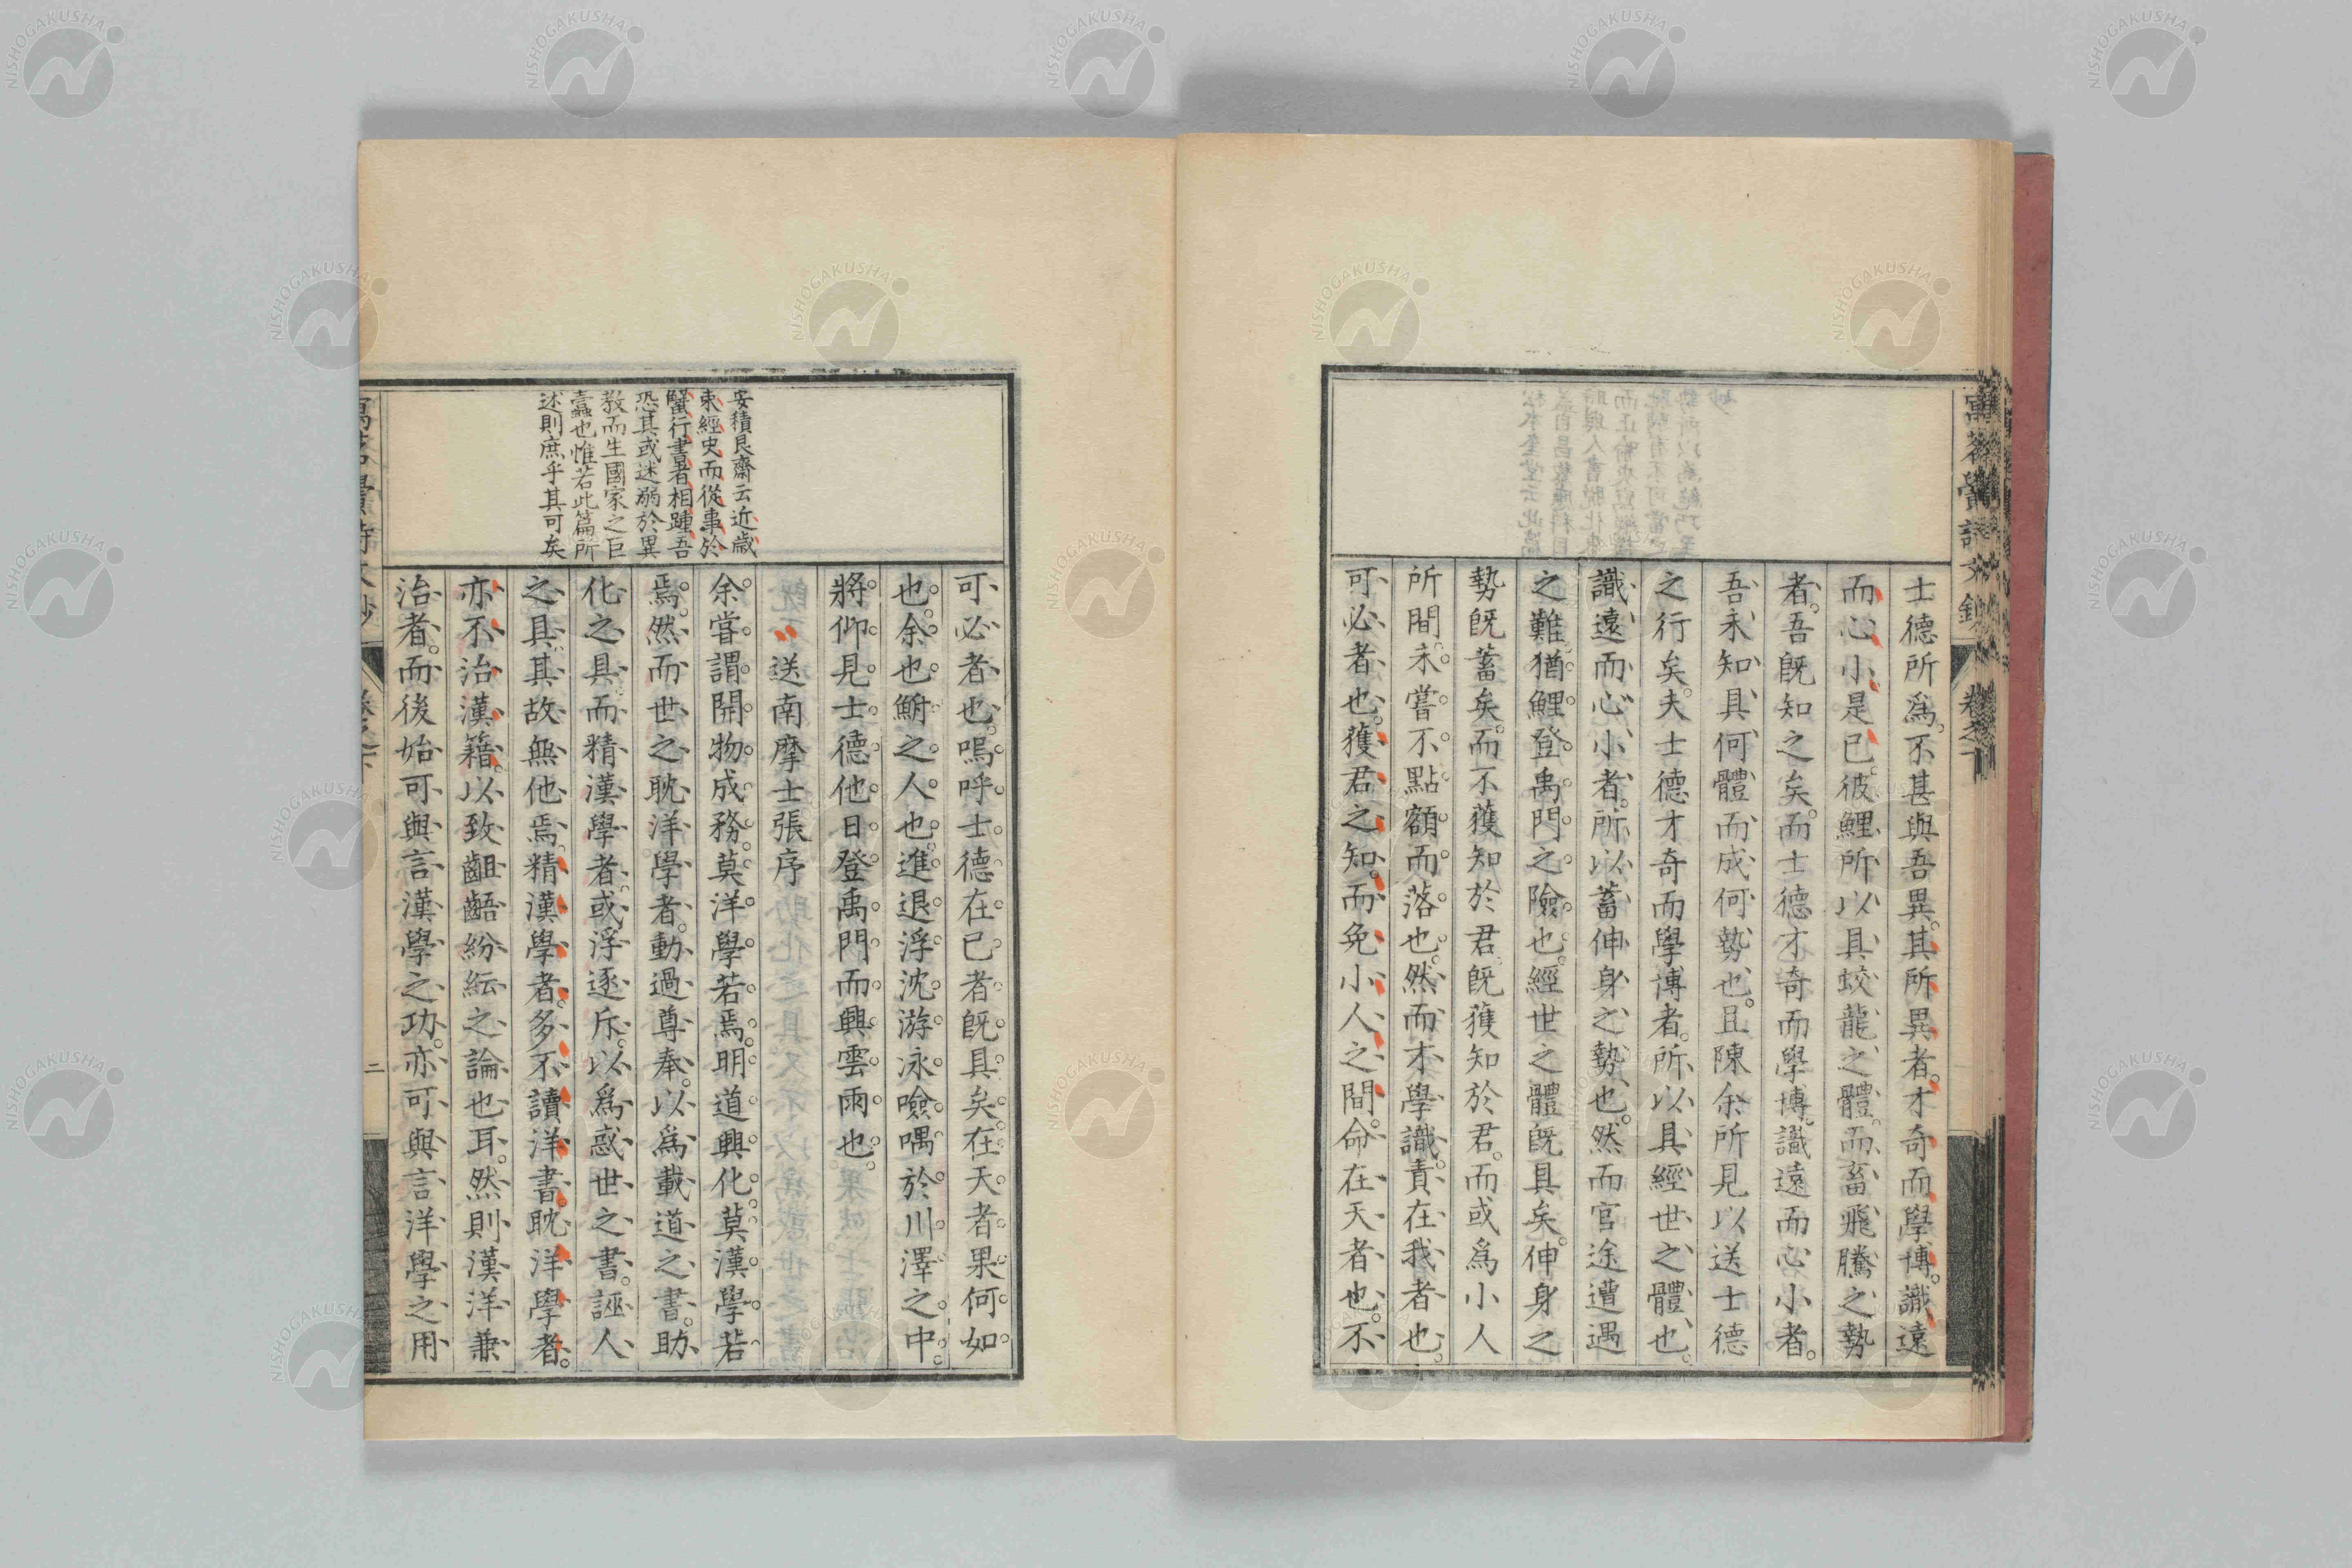 士德所爲。不甚與吾異。其所異者。才奇而學博。識遠
而心小是已。彼鯉所以具蛟龍之體。而畜飛騰之勢
者。吾既知之矣。而士德才奇而學博識遠而心小者。
吾未知具何體而成何勢也。且陳余所見以送士德
之行矣。夫士德才奇而學博者。所以具經世之體也。
識遠而心小者。所以蓄伸身之勢也。然而官途遭遇
之難。猶鯉登禹門之險也。經世之體既具矣。伸身之
勢既蓄矣。而不獲知於君。既獲知於君。而或爲小人
所間。未嘗不點額而落也。然而才學識。責在我者也。
可必者也。獲君之知。而免小人之間。命在天者也。不
安積艮齋云近歲
束經史而從事於
蟹行書者相踵吾
恐其或迷溺於異
敎而生國家之巨
蠹也惟若此篇所
述則庶乎其可矣
可必者也。嗚呼士德在已者既具矣。在天者果何如
也。余也鮒之人也。進退浮沈。游泳噞喁於川澤之中。
將仰見士德他日登禹門而興雲雨也。
送南摩士張序
余嘗謂開物成務。莫洋學若焉。明道興化。莫漢學若
焉。然而世之耽洋學者。動過尊奉。以爲載道之書。助
化之具。而精漢學者。或浮逐斥。以爲惑世之書。誣人
之具。其故無他焉。精漢學者。多不讀洋書。耽洋學者。
亦不治漢籍。以致齟齬紛紜之論也耳。然則漢洋兼
治者。而後始可與言漢學之功。亦可與言洋學之用
二
NISHOGAKUSHA